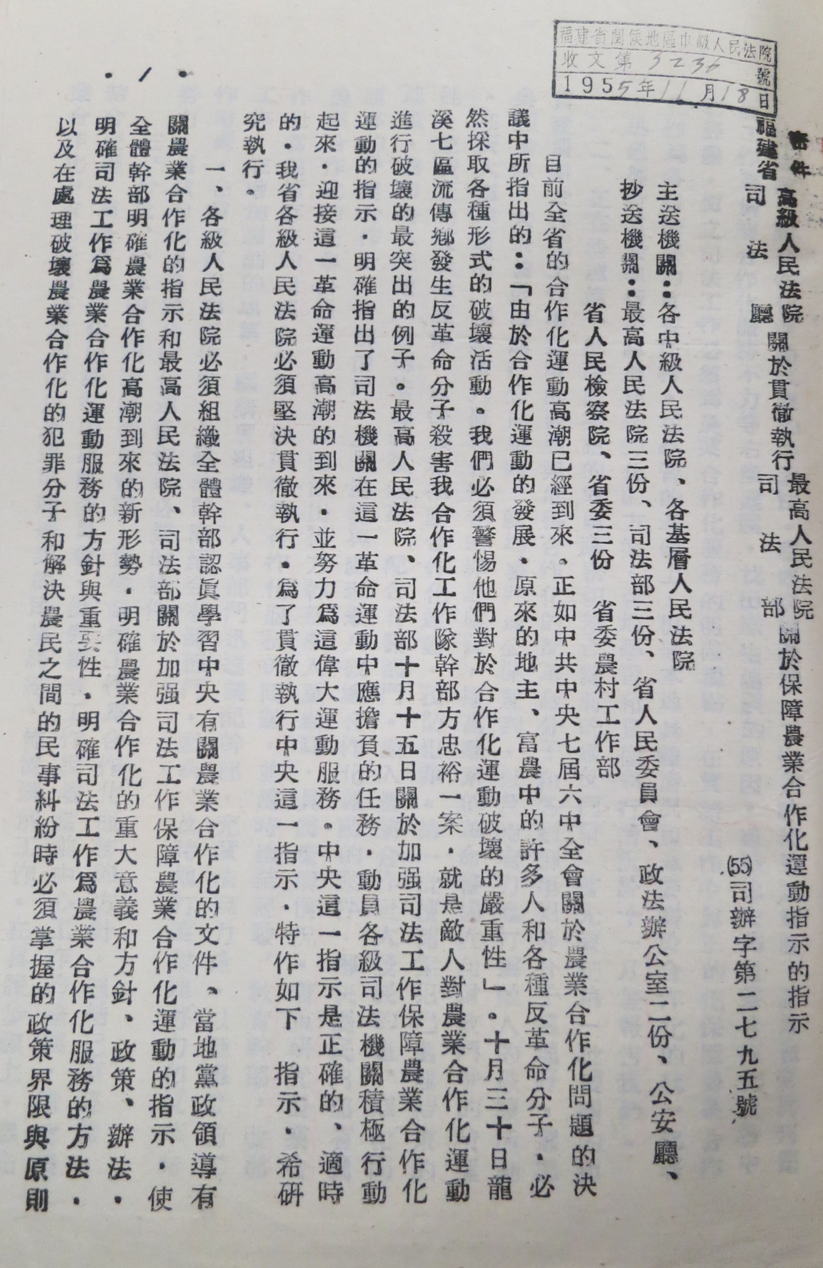 福建省閩侯地區中級人民法院
收文第3236號
1955年11月18日
密件
福建省高級人民法院司法廳關於貫徹執行最高人民法院司法部關於保障農業合作化運動指示的指示
(55)司辦字第二七九五號
主送機關：各中級人民法院、各基層人民法院
抄送機關：最高人民法院三份、司法部三份、省人民委員會、政法辦公室二份、公安廳、
省人民檢察院、省委三份 省委農村工作部
目前全省的合作化運動高潮已經到來。正如中共中央七屆六中全會關於農業合作化問題的決
議中所指出的：「由於合作化運動的發展，原來的地主、富農中的許多人和各種反革命分子，必
然採取各種形式的破壞活動。我們必須警惕他們對於合作化運動破壞的嚴重性」。十月三十日龍
溪七區流傳鄉發生反革命分子殺害我合作化工作隊幹部方忠裕一案，就是敵人對農業合作化運動
進行破壞的最突出的例子。最高人民法院、司法部十月十五日關於加强司法工作保障農業合作化
運動的指示，明確指出了司法機關在這一革命運動中應擔負的任務，動員各級司法機關積極行動
起來，迎接這一革命運動高潮的到來，並努力爲這偉大運動服務。中央這一指示是正確的、適時
的，我省各級人民法院必須堅決貫徹執行。爲了貫徹執行中央這一指示，特作如下 指示，希研
究執行。
一、各級人民法院必須組織全體幹部認眞學習中央有關農業合作化的文件、當地黨政領導有
關農業合作化的指示和最高人民法院、司法部關於加强司法工作保障農業合作化運動的指示，使
全體幹部明確農業合作化高潮到來的新形勢，明確農業合作化的重大意義和方針、政策、辦法，
明確司法工作爲農業合作化運動服務的方針與重要性，明確司法工作爲農業合作化服務的方法，
以及在處理破壞農業合作化的犯罪分子和解決農民之間的民事糾紛時必須掌握的政策界限與原則
·1·